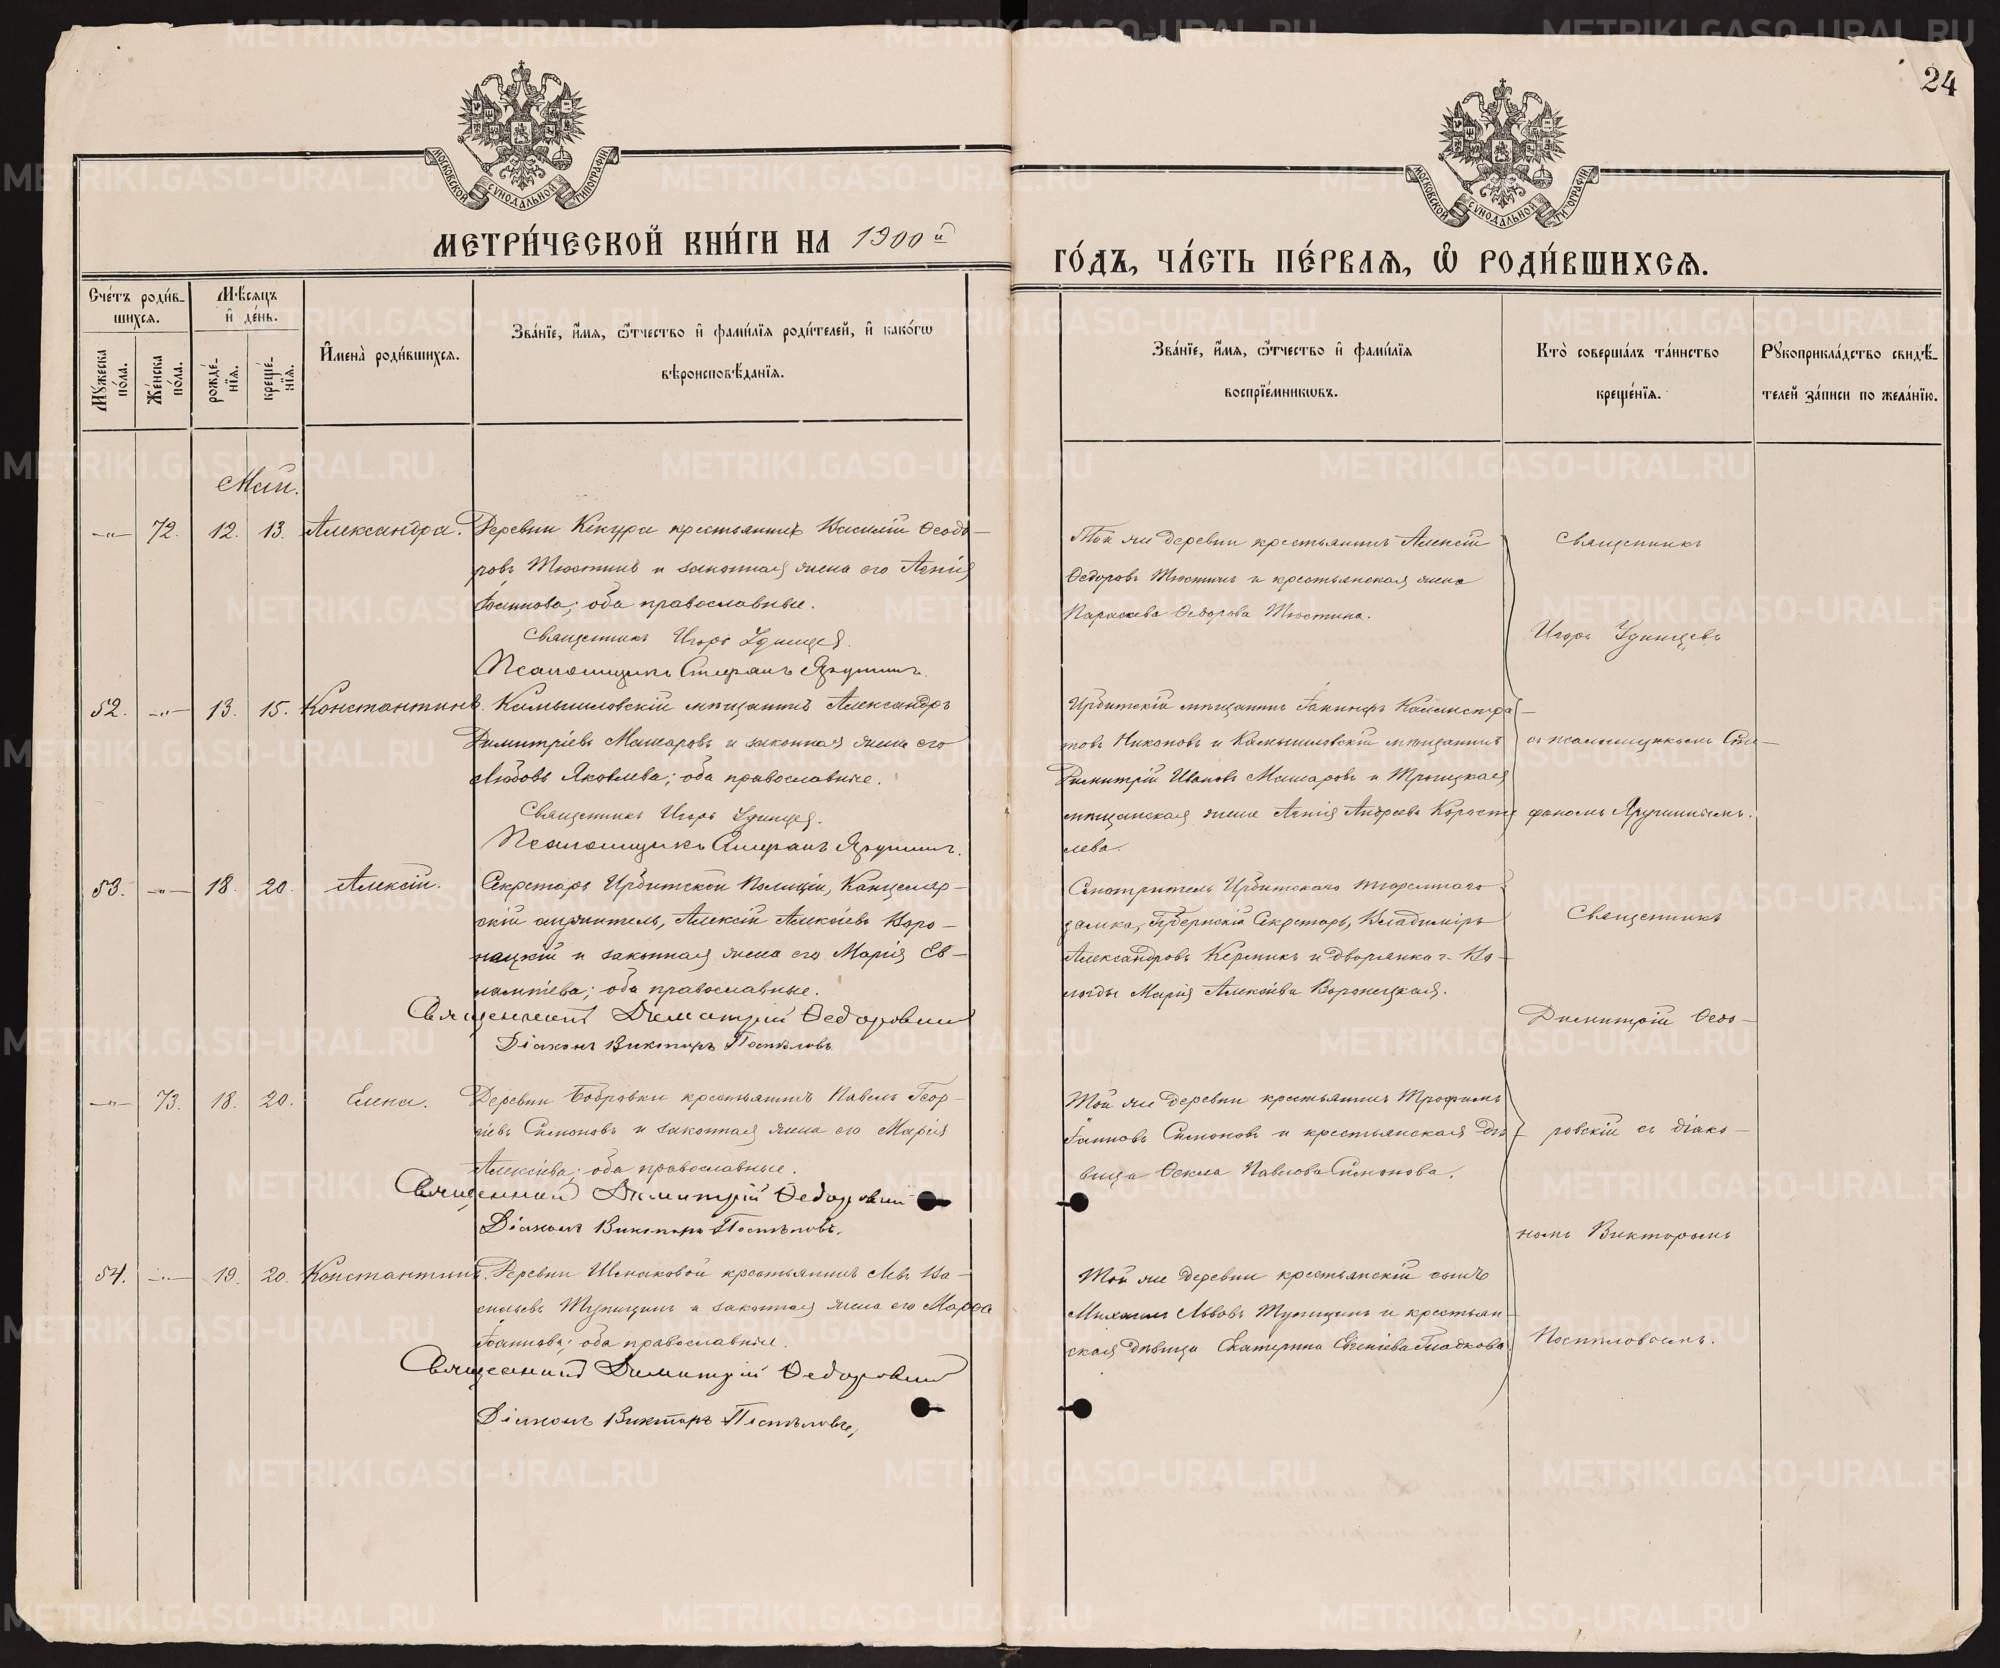 24
МОСКОВСКОЙ СѴНОДАЛЬНОЙ ТИПОГРАФІИ
МОСКОВСКОЙ СѴНОДАЛЬНОЙ ТИПОГРАФІИ
МЕТРИ́ЧЕСКОЙ КНИ́ГИ НА 1900й
ГО́ДЪ, ЧА́СТЬ ПЕ́РВАЯ, Ѡ҆ РОДИ́ВШИХСЯ.
Сче́тъ роди́вшихся.
Мѣ́сяцъ и҆ де́нь.
Мꙋ́жеска по́ла.
Же́нска по́ла.
рожде́нїя.
креще́нїя.
И҆мена̀ роди́вшихся.
Зва́нїе, и҆́мя, ѻ҆́тчество и҆ фами́лїя роди́телей, и҆ како́гѡ
вѣроисповѣ́данїя.
Зва́нїе, и҆́мя, ѻ҆́тчество и҆ фами́лїя
воспрїе́мникѡвъ.
Кто̀ соверша́лъ та́инство
креще́нїя.
Рꙋкоприкла́дство свидѣ́-
телей за́писи по жела́нїю.
Май.
—„— 72. 12. 13. Александра.
Деревни Кекура крестьянинъ Василій Ѳеодо-
ровъ Тюстинъ и законная жена его Агнія
Іоаннова; оба православные.
Священникъ Игорь Удинцев.
Псаломщикъ Стефанъ Ярушинъ.
Той же деревни крестьянинъ Алексій
Ѳедоровъ Тюстинъ и крестьянская жена
Параскева Ѳедорова Тюстина.
Священникъ
Игорь Удинцевъ
52. —„— 13. 15. Константинъ.
Камышловскій мѣщанинъ Александръ
Димитріевъ Машаровъ и законная жена его
Любовь Яковлева; оба православные.
Священникъ Игорь Удинцев.
Псаломщикъ Стефанъ Ярушинъ.
Ирбитскій мѣщанинъ Іакинфъ Каллистра-
товъ Никоновъ и Камышловскій мѣщанинъ
Димитрій Ивановъ Машаровъ и Троицкая
мѣщанская жена Агнія Андреева Коросте
лева.
съ псаломщикомъ Сте-
фаномъ Ярушинымъ.
53. —„— 18. 20. Алексій.
Секретарь Ирбитской Полиціи, Канцеляр-
скій служитель, Алексій Алексіевъ Воро-
нецкій и законная жена его Марія Ев-
лампіева; оба православные.
Священникъ Димитрій Ѳедоровскій
Діаконъ Викторъ Поспѣловъ
Смотритель Ирбитскаго тюремнаго
замка, Губернскій Секретарь, Владиміръ
Александровъ Керникъ и дворянка г. Во-
логды Марія Алексіева Воронецкая.
Священникъ
Димитрій Ѳедо-
—„— 73. 18. 20. Елена.
Деревни Бобровки крестьянинъ Павелъ Геор-
гіевъ Симоновъ и законная жена его Марія
Алексіева; оба православные.
Священникъ Димитрій Ѳедоровскій
Діаконъ Викторъ Поспѣловъ.
Той же деревни крестьянинъ Трофимъ
Іанновъ Симоновъ и крестьянская дѣ-
вица Ѳекла Павлова Симонова.
ровскій съ діако-
номъ Викторомъ
54. —„— 19. 20. Константинъ.
Деревни Шмаковой крестьянинъ Левъ Ва-
сильевъ Тупицинъ и законная жена его Марѳа
Іоаннова; оба православные.
Священникъ Димитрій Ѳедоровскій
Діаконъ Викторъ Поспѣловъ,
Той же деревни крестьянскій сынъ
Михаилъ Львовъ Тупицинъ и крестьян-
ская дѣвица Екатерина Евгеніева Гладкова.
Поспѣловымъ.
METRIKI.GASO-URAL.RU